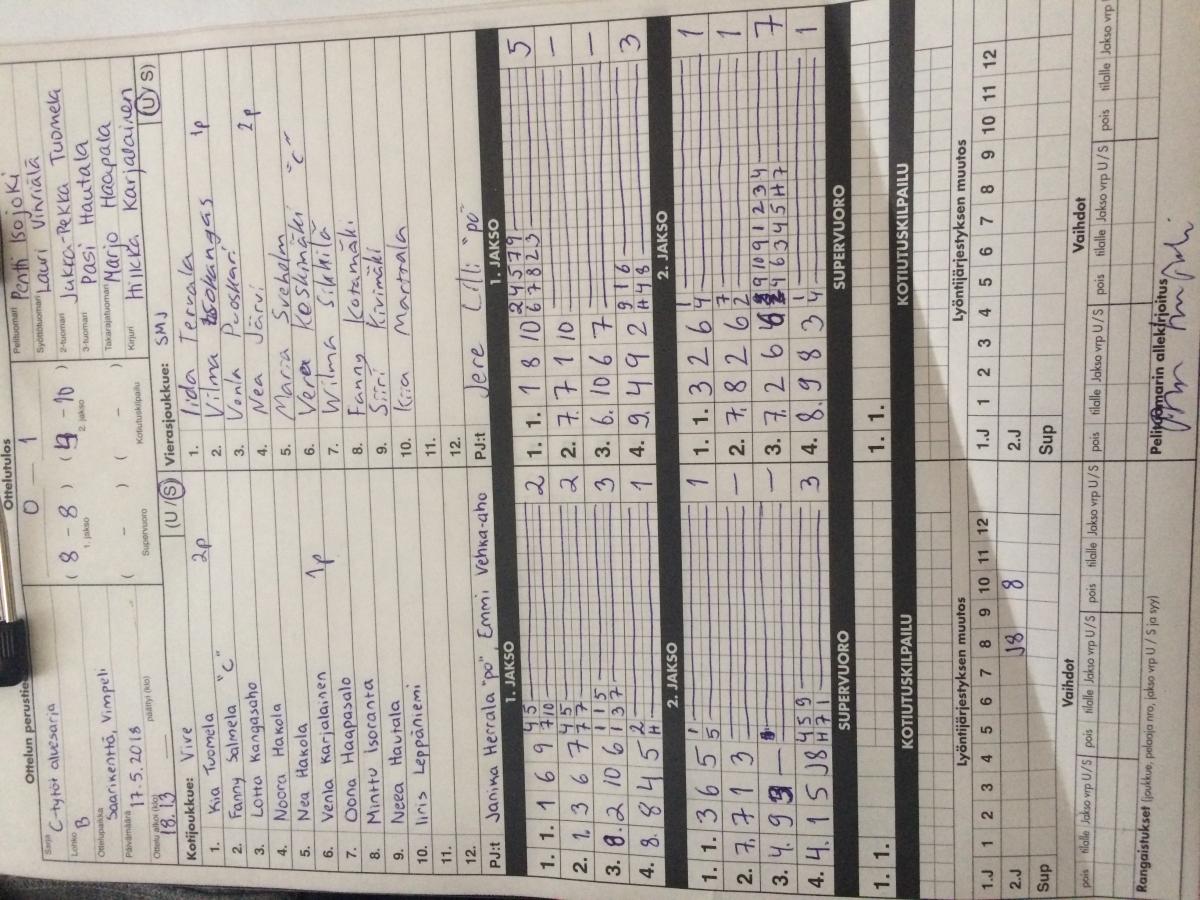 Ottelun perustie
Sarja C-tytöt aluesarja
Lohko B
Ottelupaikka Saarikenttä, Vimpeli
Päivämäärä 17.5.2018
Ottelu alkoi (klo) 18.13 päättyi (klo) —
Ottelutulos
0 – 1
( 8 – 8 ) ( 4 – 10 )
1. jakso 2. jakso
( – ) ( – )
Supervuoro Kotiutuskilpailu
Pelituomari Pentti Isojoki
Syöttötuomari Lauri Vinriälä
2-tuomari Jukka-Pekka Tuomela
3-tuomari Pasi Hautala
Takarajatuomari Marjo Haapala
Kirjuri Hilkka Karjalainen
Kotijoukkue: Vire (U / S)
1. Kia Tuomela 2p
2. Fanny Salmela "C"
3. Lotta Kangasaho
4. Noora Hakola
5. Nea Hakola
6. Venla Karjalainen 1p
7. Oona Haapasalo
8. Minttu Isoranta
9. Neea Hautala
10. Iiris Leppäniemi
11.
12.
PJ:t Janika Herrala "po", Emmi Vehka-aho
Vierasjoukkue: SMJ (U / S)
1. Iida Tervala 1p
2. Vilma Isokangas
3. Venla Puoskari 2p
4. Nea Järvi
5. Maria Sveholm
6. Veera Koskimäki "C"
7. Wilma Sikkilä
8. Fanny Kotamäki
9. Siiri Kivimäki
10. Kiia Marttala
11.
12.
PJ:t Jere Lilli "po"
1. JAKSO
1. 1. 1 6 9 4 5 2
7 10
2. 1. 3 6 7 4 5 2
7 7
3. 8. 2 10 6 1 1 5 3
1 3 7
4. 8. 8 4 5 2 1
H
2. JAKSO
1. 1. 3 6 5 1 1
5
2. 7. 7 1 3 —
3. 4. 9 3 — —
4. 4. 1 5 J8 4 5 9 3
H 7 1
SUPERVUORO
1. 1.
KOTIUTUSKILPAILU
1. JAKSO
1. 1. 1 8 10 2 4 5 7 9 5
6 7 8 2 3
2. 7. 7 1 10 —
3. 6. 10 6 7 —
4. 9. 4 9 2 9 1 6 3
H 4 8
2. JAKSO
1. 1. 3 2 6 1 1
4
2. 7. 8 2 6 7 1
2
3. 7. 2 6 9 10 9 1 2 3 4 7
4 6 3 4 5 H 7
4. 8. 9 8 3 1 1
4
SUPERVUORO
1. 1.
KOTIUTUSKILPAILU
Lyöntijärjestyksen muutos
1.J 1 2 3 4 5 6 7 8 9 10 11 12
2.J J8 8
Sup
Vaihdot
pois tilalle Jakso vrp U / S pois tilalle Jakso vrp U / S pois tilalle Jakso vrp U / S
Lyöntijärjestyksen muutos
1.J 1 2 3 4 5 6 7 8 9 10 11 12
2.J
Sup
Vaihdot
pois tilalle Jakso vrp U / S pois tilalle Jakso vrp U / S pois tilalle Jakso vrp U
Rangaistukset (joukkue, pelaaja nro, jakso vrp U / S ja syy)
Pelituomarin allekirjoitus